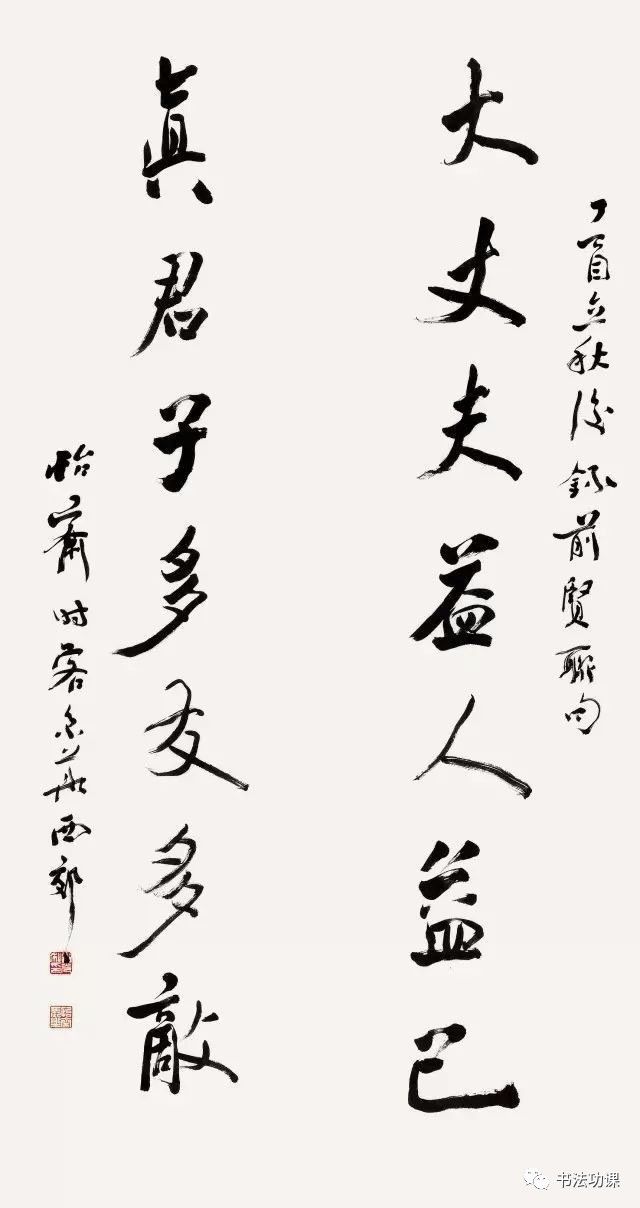 丁酉立秋後錄前賢聯句
大丈夫益人益己
真君子多友多敵
怡齋时客京華西郊
书法功课